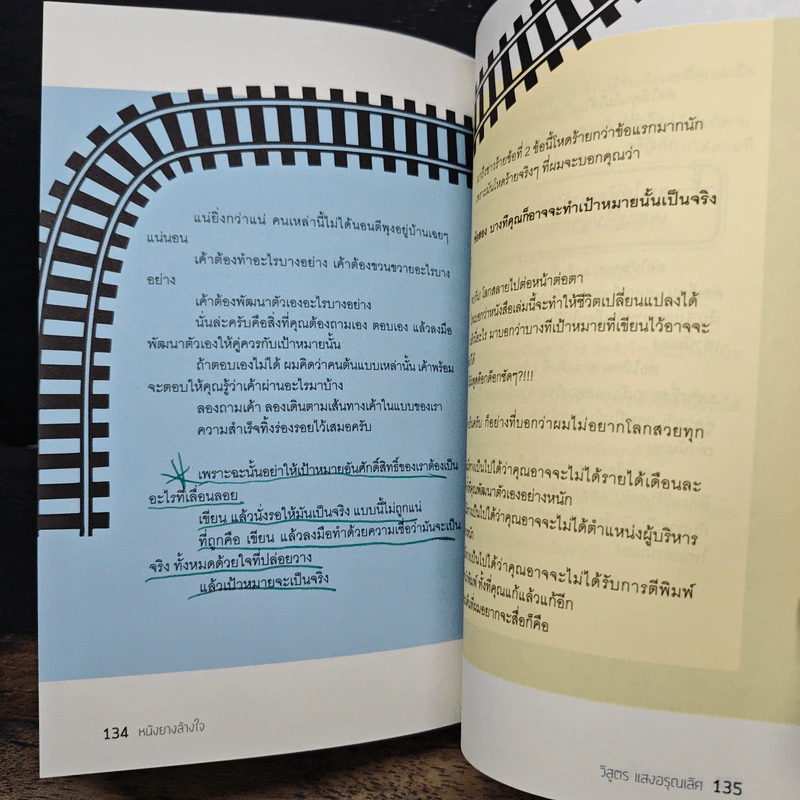 แน่ยิ่งกว่าแน่ คนเหล่านี้ไม่ได้นอนตีพุงอยู่บ้านเฉยๆ
แน่นอน
เค้าต้องทำอะไรบางอย่าง เค้าต้องขวนขวายอะไรบาง
อย่าง
เค้าต้องพัฒนาตัวเองอะไรบางอย่าง
นั่นล่ะครับคือสิ่งที่คุณต้องถามเอง ตอบเอง แล้วลงมือ
พัฒนาตัวเองให้คู่ควรกับเป้าหมายนั้น
ถ้าตอบเองไม่ได้ ผมคิดว่าคนต้นแบบเหล่านั้น เค้าพร้อม
จะตอบให้คุณรู้ว่าเค้าผ่านอะไรมาบ้าง
ลองถามเค้า ลองเดินตามเส้นทางเค้าในแบบของเรา
ความสำเร็จทิ้งร่องรอยไว้เสมอครับ
เพราะฉะนั้นอย่าให้เป้าหมายอันศักดิ์สิทธิ์ของเราต้องเป็น
อะไรที่เลื่อนลอย
เขียน แล้วนั่งรอให้มันเป็นจริง แบบนี้ไม่ถูกแน่
ที่ถูกคือ เขียน แล้วลงมือทำด้วยความเชื่อว่ามันจะเป็น
จริง ทั้งหมดด้วยใจที่ปล่อยวาง
แล้วเป้าหมายจะเป็นจริง
134 หนังยางล้างใจ
มาถึงข่าวร้ายข้อที่ 2 ข้อนี้โหดร้ายกว่าข้อแรกมากนัก
เพราะมันโหดร้ายจริงๆ ที่ผมจะบอกคุณว่า
บางทีคุณก็อาจจะทำเป้าหมายนั้นเป็นจริง
โลกสลายไปต่อหน้าต่อตา
บอกว่าหนังสือเล่มนี้จะทำให้ชีวิตเปลี่ยนแปลงได้
มาบอกว่าบางทีเป้าหมายที่เขียนไว้อาจจะ
ชัดๆ?!!!
ก็อย่างที่บอกว่าผมไม่อยากโลกสวยทุก
เป็นไปได้ว่าคุณอาจจะไม่ได้รายได้เดือนละ
ที่คุณพัฒนาตัวเองอย่างหนัก
เป็นไปได้ว่าคุณอาจจะไม่ได้ตำแหน่งผู้บริหาร
เป็นไปได้ว่าคุณอาจจะไม่ได้รับการตีพิมพ์
ทั้งที่คุณแก้แล้วแก้อีก
ที่ผมอยากจะสื่อก็คือ
วิสูตร แสงอรุณเลิศ 135